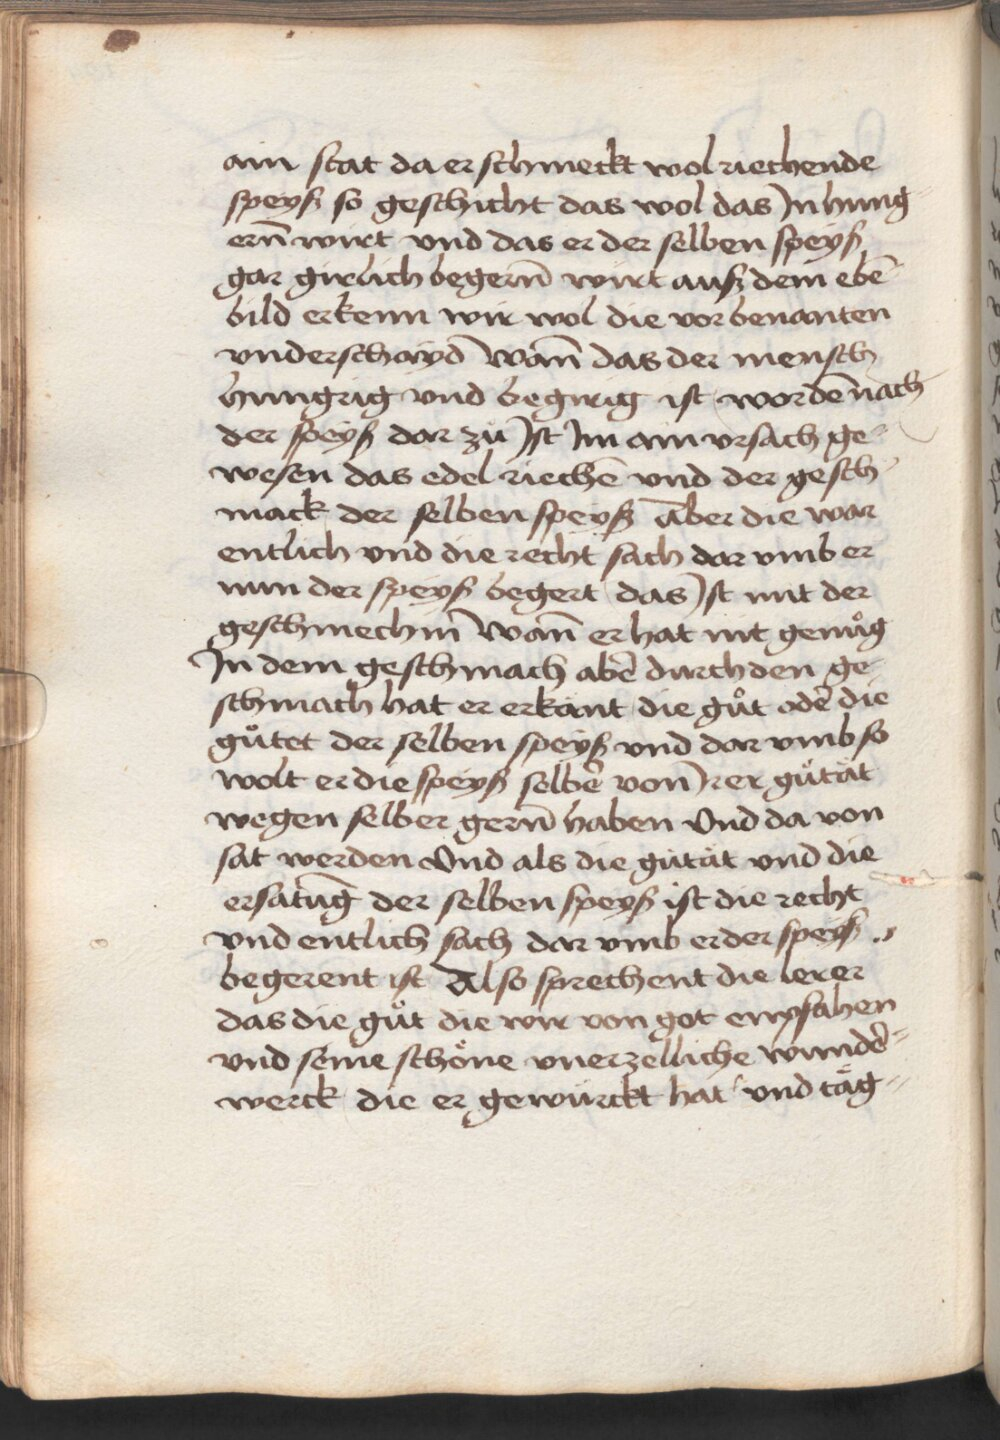 ain stat da er schmeckt wol riechende
speyß so geschicht das wol das Jn hung
ern̄ wirt vnd das er der selben speyß
gar girlich begern̄ wirt auß dem ebē
bild erkenn wir wol die vor benanten
vnderschayd Wan̄ das der mensch
hungrig vnd begirig ist wordē nach
der speyß dar zů Jst Jm ain vrsach ge
wesen das edel riechē vnd der gesch
mack der selben speyß aber die war
entlich vnd die recht sach dar vmb er
nun der speyß begert das Jst nit der
geschmech nit Wan̄ er hat nit genůg
Jn dem geschmach aber durch den ge
schmach hat er erkant die gůt oder die
gůtet der selben speyß vnd dar vmb so
wolt er die speyß selber von Jrer gůtät
wegen selber gern̄ haben Vnd da von
sat werden Vnd als die gütät vnd die
ersatūg der selben speyß ist die recht
vnd entlich sach dar vmb er der speyß
begerent ist Also sprechent die lerer
das die gůt die wir von got empfahen
vnd seine schöne vnerzelliche wunder
werck die er gewürckt hat vnd täg